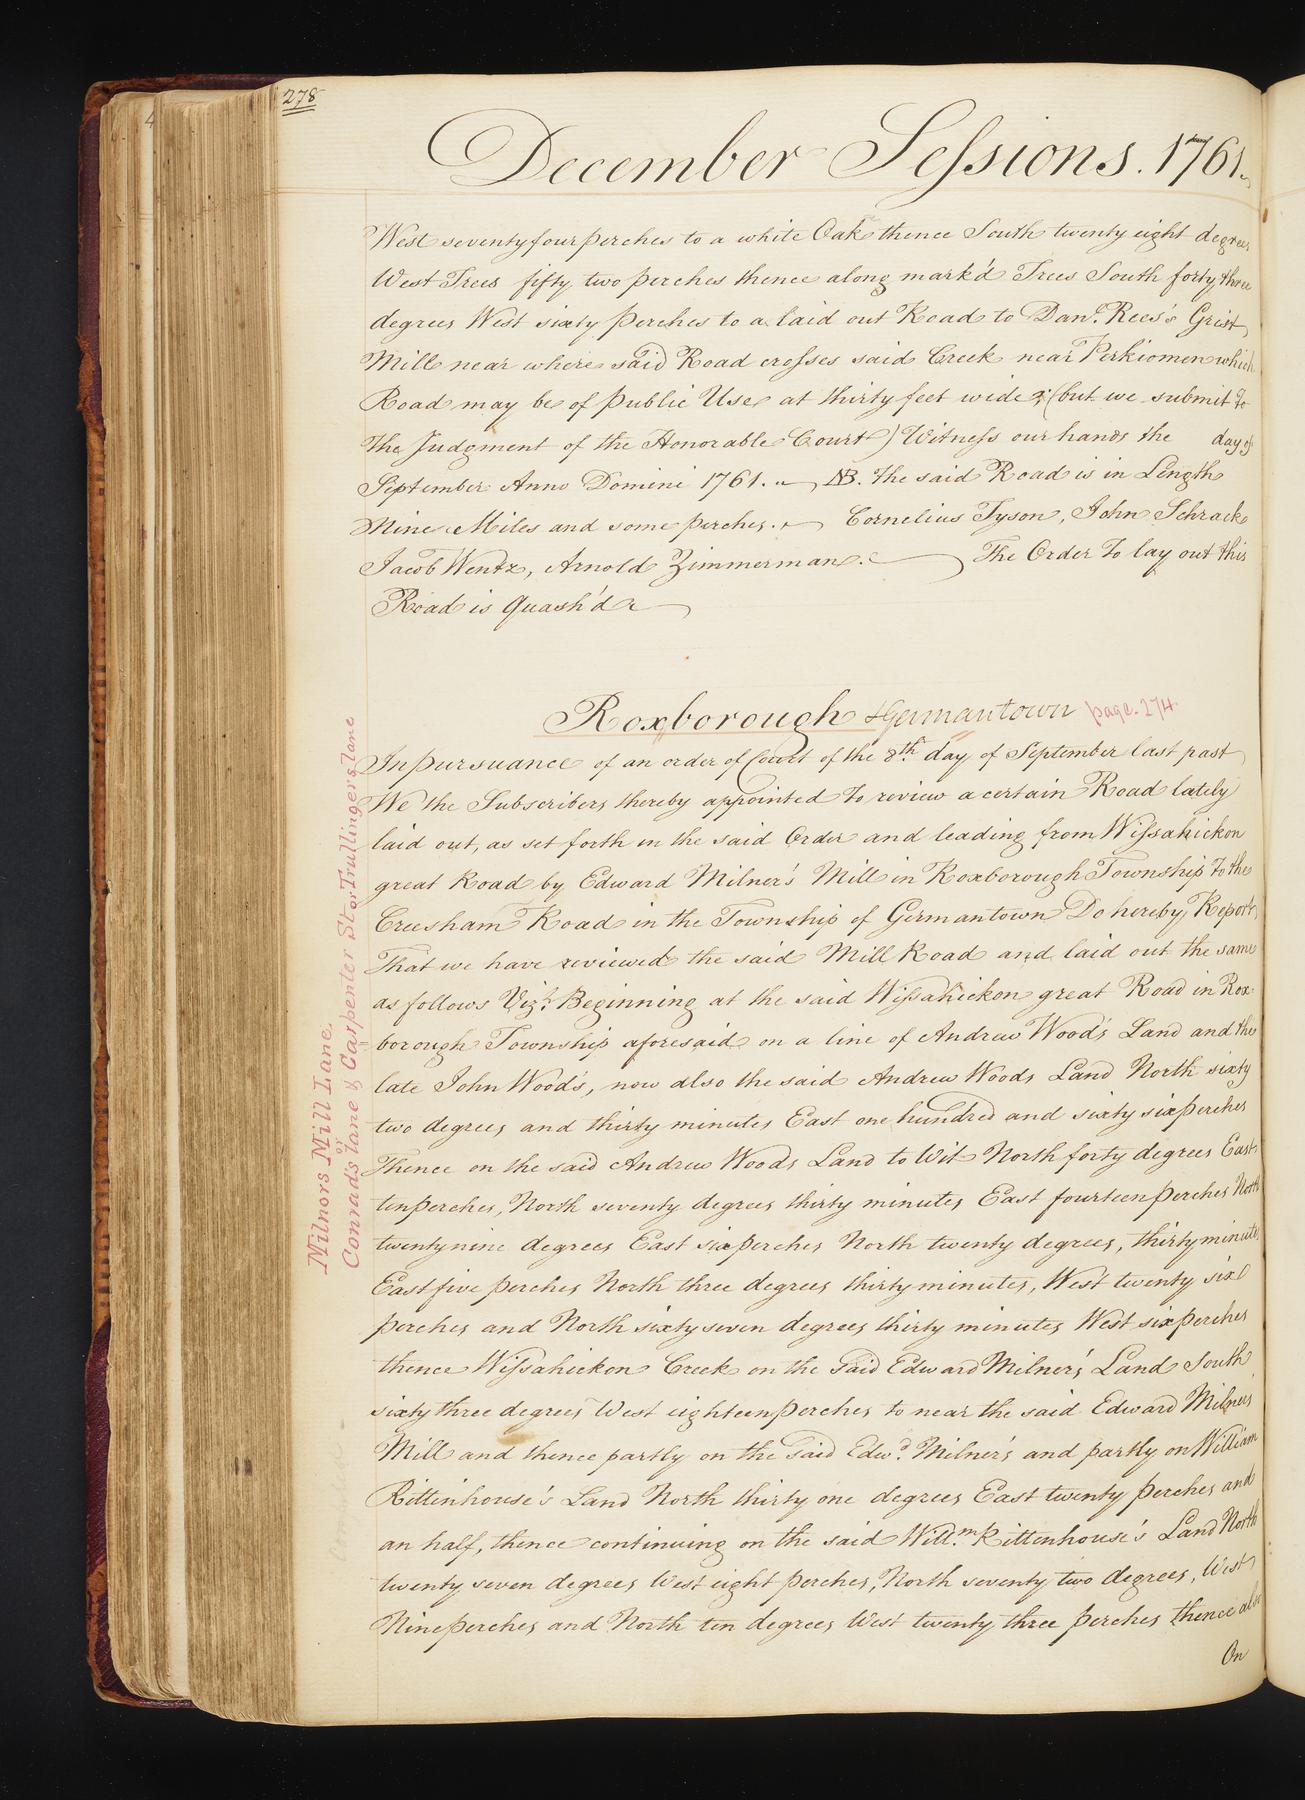 278
December Sessions. 1761.
West seventy four perches to a white Oak thence South twenty eight degrees
West Trees fifty two perches thence along mark'd Trees South forty three
degrees West sixty perches to a laid out Road to Danl. Rees's Grist
Mill near where said Road crosses said Creek near Perkiomen which
Road may be of public Use at thirty feet wide; (but we submit to
the Judgment of the Honorable Court) Witness our hands the day of
September Anno Domini 1761. NB. the said Road is in Length
Nine Miles and some perches. Cornelius Tyson, John Schrack
Jacob Wentz, Arnold Zimmerman. The Order to lay out this
Road is quash'd
Roxborough & Germantown page. 274.
In pursuance of an order of Court of the 8th day of September last past
We the Subscribers thereby appointed to review a certain Road lately
laid out, as set forth in the said Order and leading from Wissahickon
great Road by Edward Milner's Mill in Roxborough Township to the
Creesham Road in the Township of Germantown Do hereby Report,
That we have reviewed the said Mill Road and laid out the same
as follows Vizt. Beginning at the said Wissahickon great Road in Rox-
=borough Township aforesaid on a line of Andrew Wood's Land and the
late John Wood's, now also the said Andrew Woods Land North sixty
two degrees and thirty minutes East one hundred and sixty six perches
Thence on the said Andrew Woods Land to Wit North forty degrees East
ten perches, North seventy degrees thirty minutes East fourteen perches North
twenty nine degrees East six perches North twenty degrees, thirty minutes
East five perches North three degrees thirty minutes, West twenty six
perches and North sixty seven degrees thirty minutes West six perches
thence Wissahickon Creek on the said Edward Milner's Land South
sixty three degrees West eighteen perches to near the said Edward Milner's
Mill and thence partly on the said Edwd. Milner's and partly on William
Rittinhouse's Land North thirty one degrees East twenty perches and
an half, thence continuing on the said Willm. Rittenhouse's Land North
twenty seven degrees West eight perches, North seventy two degrees, West
Nine perches and North ten degrees West twenty three perches thence also
On
Milnors Mill Lane.
or
Conrads lane & Carpenter St. or Trullingers lane